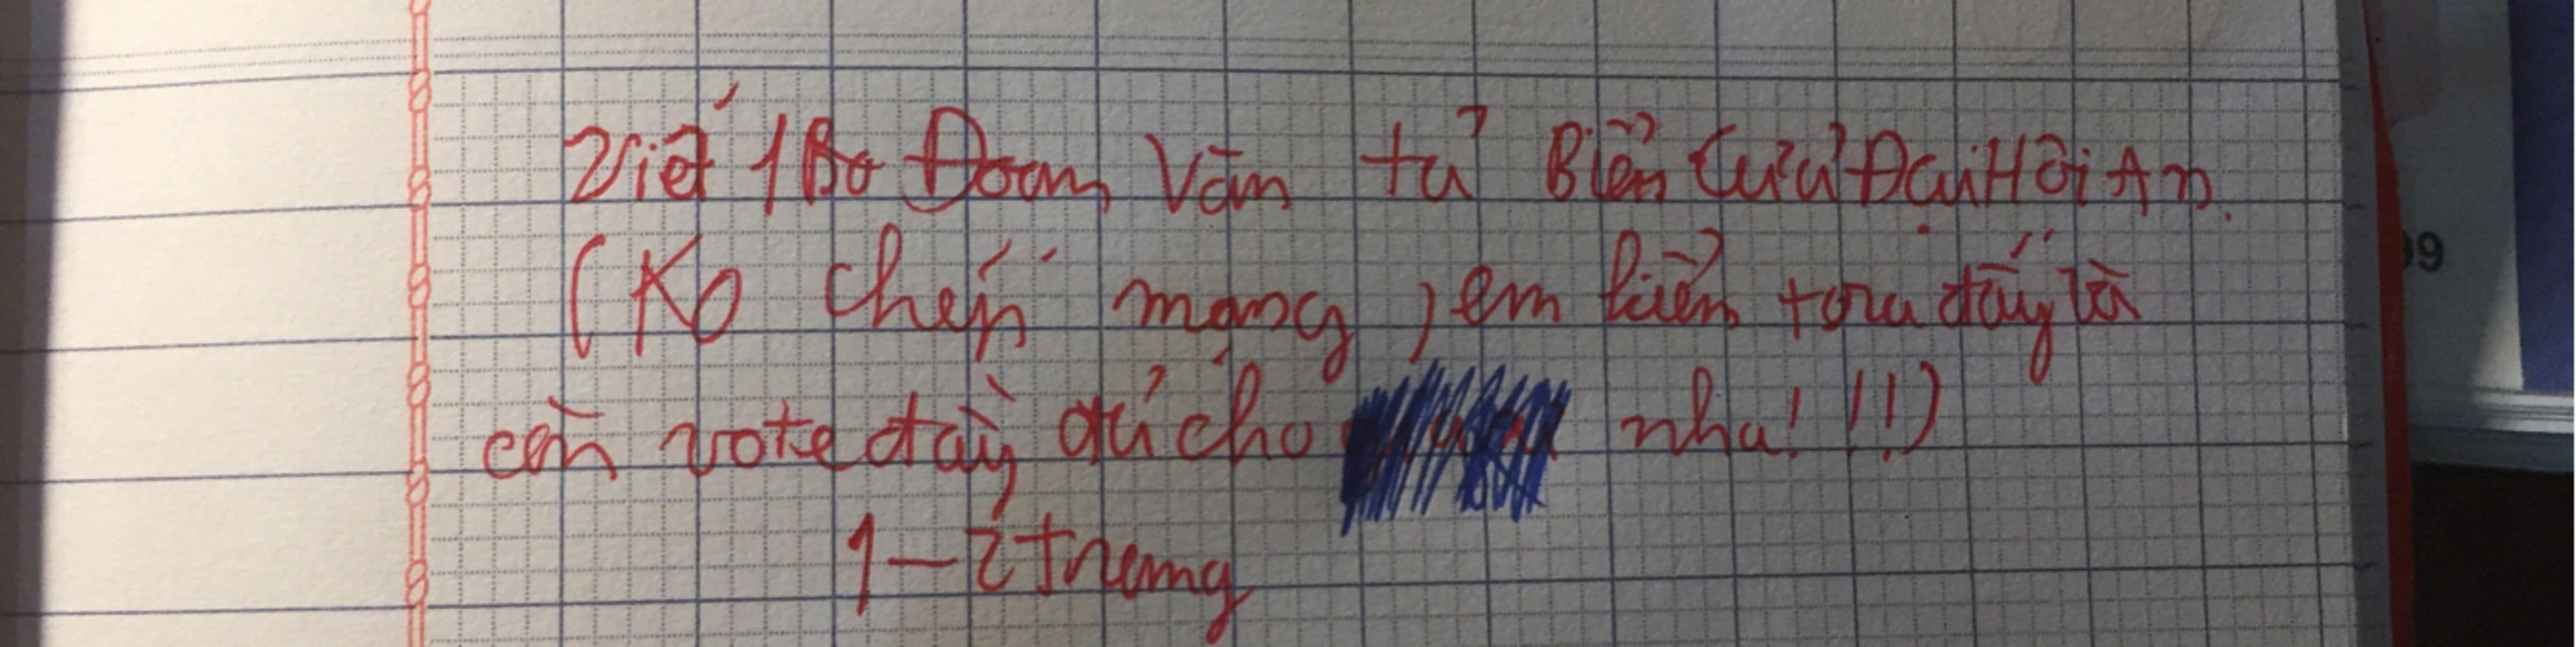 Viết 1 Bo Đoạn Văn tả Biển Cửa Đại Hội An.
(Ko chép mạng, em kiểm tra đấy là
còn vote đầy đủ cho nha! !!)
1-2 trang
99